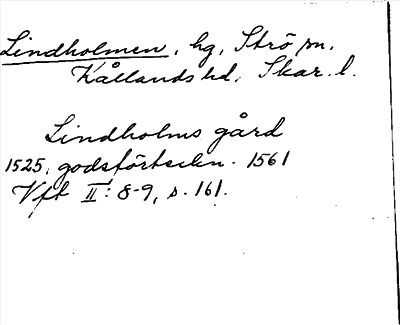 Lindholmen, hg, Strö sn.
Kållands hd, Skar. l.
Lindholms gård
1525, godsförteckn. 1561
Vft II: 8-9, s. 161.